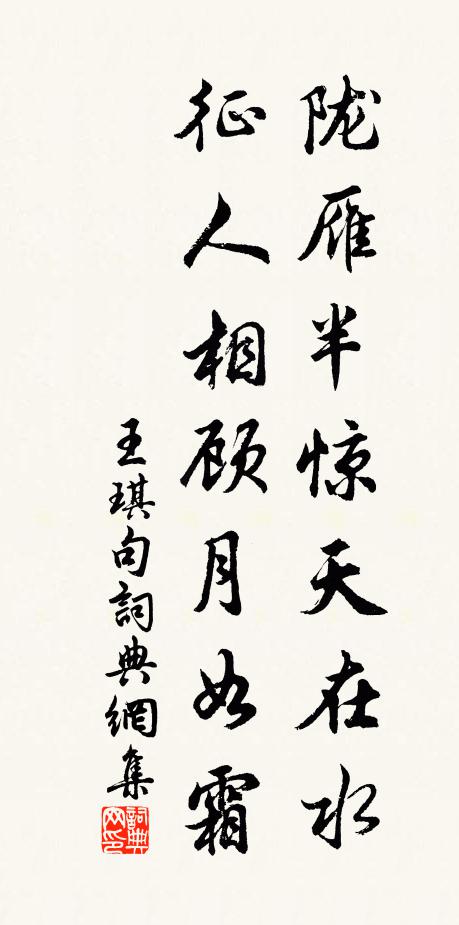 陇雁半惊天在水
征人相顾月如霜
王琪句詞典網集
詞典网印